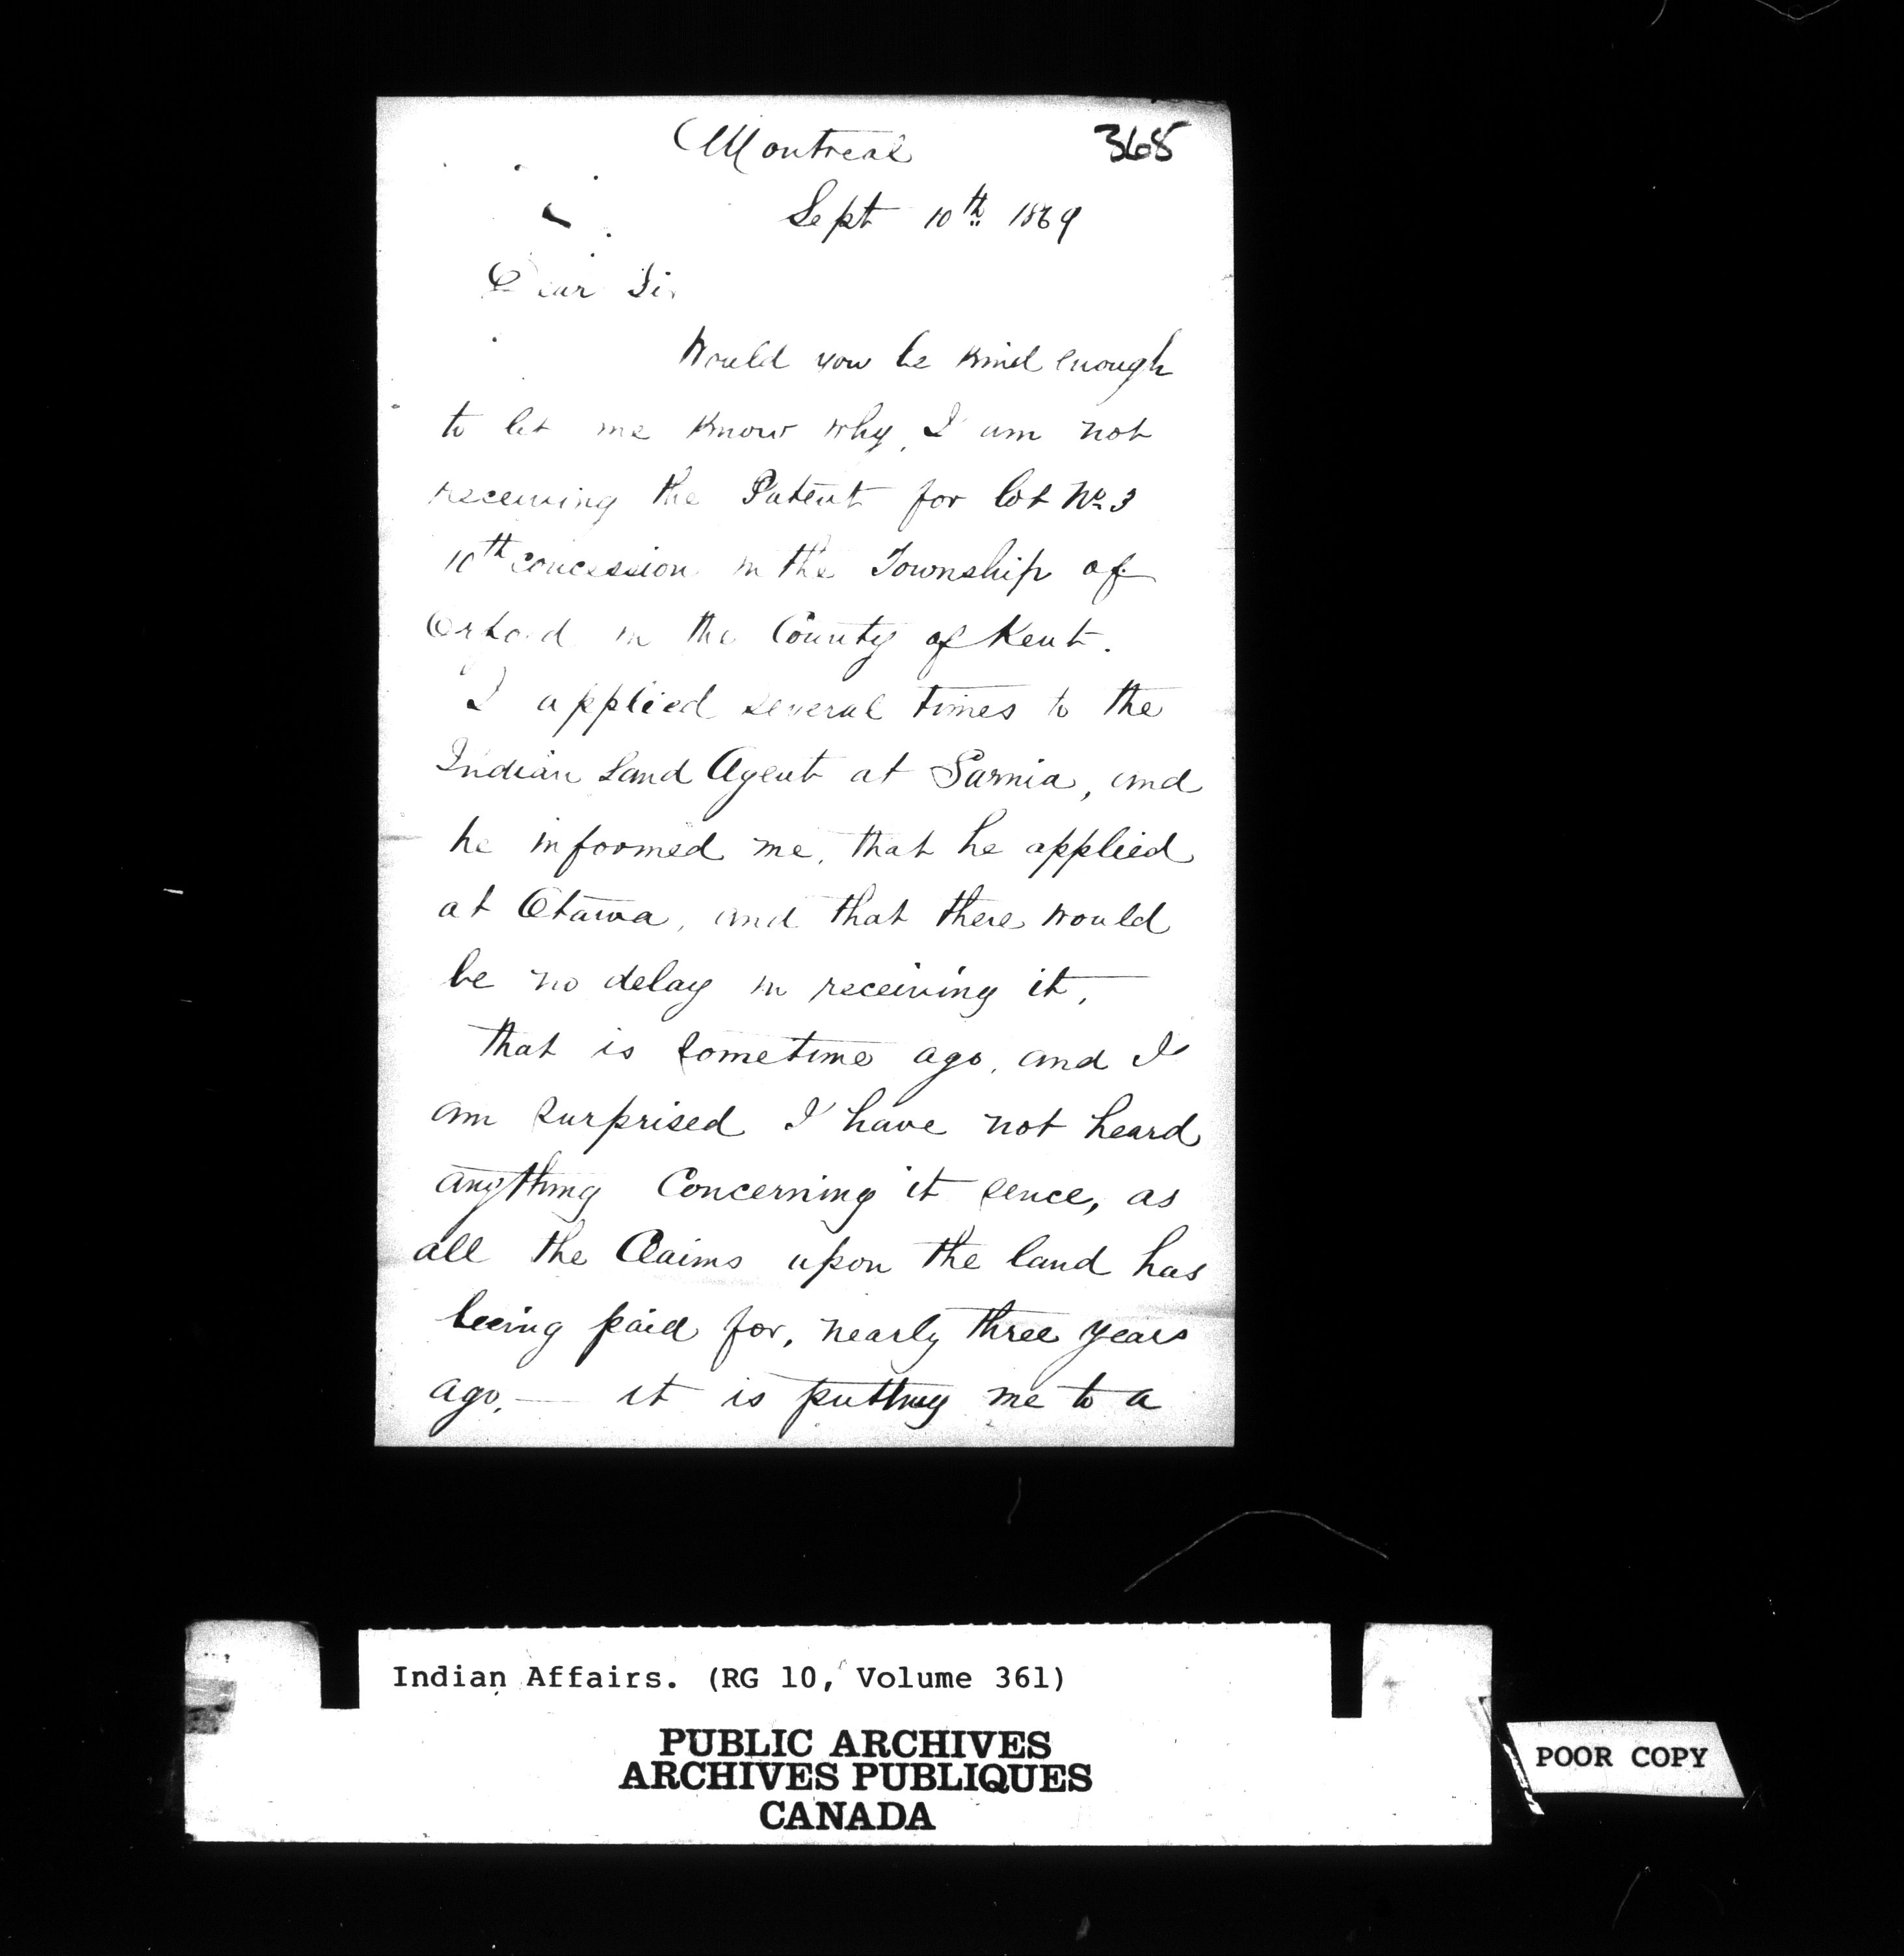 Montreal 368
Sept 10th 1869
Dear Sir
Would you be kind enough
to let me know why, I am not
receiving the Patent for lot No 3
10th concession in the Township of
Orford in the County of Kent.
I applied several times to the
Indian Land Agent at Sarnia, and
he informed me, that he applied
at Otawa, and that there would
be no delay in receiving it,
that is sometime ago, and I
am surprised I have not heard
anything Concerning it sence, as
all the Claims upon the land has
being paid for, nearly three years
ago, — it is putting me to a
Indian Affairs. (RG 10, Volume 361)
PUBLIC ARCHIVES
ARCHIVES PUBLIQUES
CANADA
POOR COPY